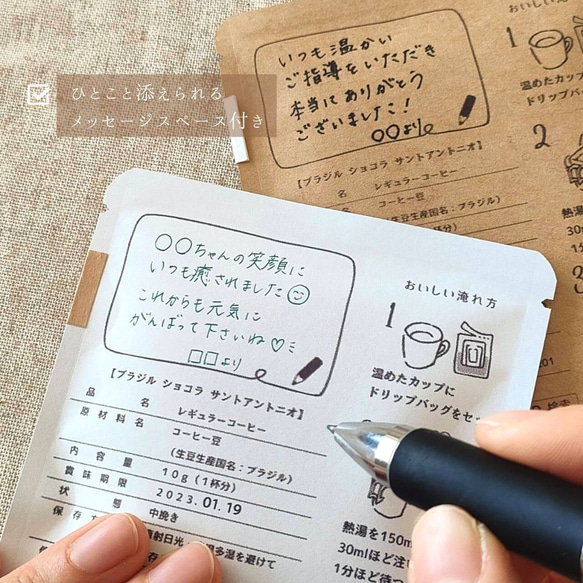 ひとこと添えられる
メッセージスペース付き
いつも温かい
ご指導をいただき
本当にありがとう
ございました!
○○より
【ブラジル ショコラ サントアントニオ】
名 レギュラーコーヒー
名 コーヒー豆
(生豆生産国名:ブラジル)
1杯分)
おいしい淹れ
1
温めたカップ
ドリップバッグ
2
熱湯
30ml
1分
○○ちゃんの笑顔に
いつも癒されました
これからも元気に
がんばって下さいね♡
□□より
【ブラジル ショコラ サントアントニオ】
品 名 レギュラーコーヒー
原 材 料 名 コーヒー豆
(生豆生産国名:ブラジル)
内 容 量 10g(1杯分)
賞 味 期 限 2023.01.19
状 態 中挽き
保 存 方 射日光 多湿を避けて
おいしい淹れ方
1
温めたカップに
ドリップバッグをセッ
熱湯を150m
30mlほど注い
1分ほど待